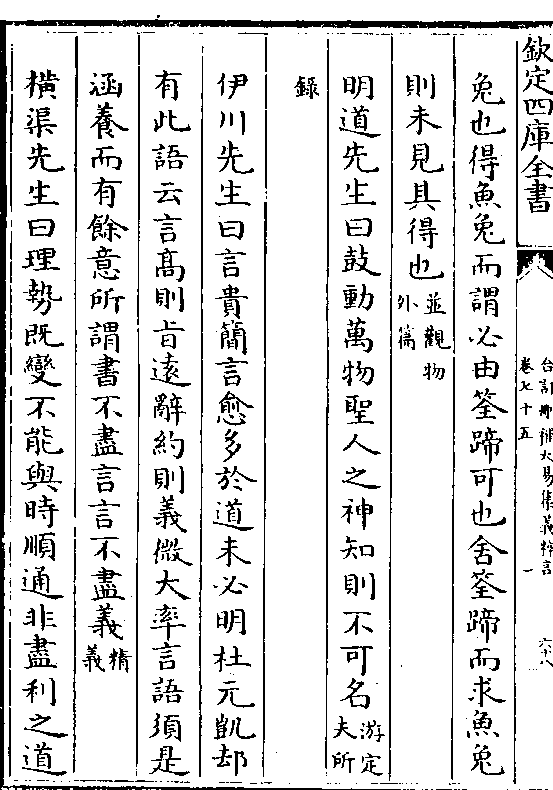 欽定四庫全書
卷七十五
兔也得魚兔而謂必由筌蹄可也舍筌蹄而求魚兔
則未見其得也並觀物外篇
明道先生曰鼓動萬物聖人之神知則不可名游定夫所
錄
伊川先生曰言貴簡言愈多於道未必明杜元凱却
有此語云言髙則旨逺辭約則義微大率言語須是
涵養而有餘意所謂書不盡言言不盡義精義
橫渠先生曰理勢既變不能與時順通非盡利之道